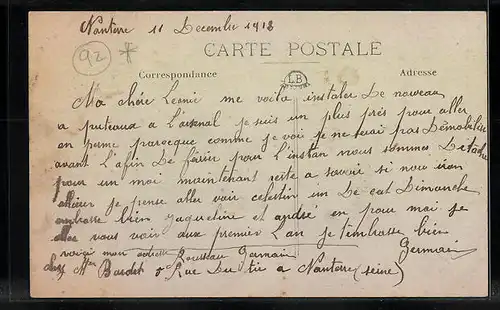 Nanterre 11 Decembre 1918
92 *
CARTE POSTALE
Correspondance
LB
Adresse
Ma chère Leonie me voila instaler De nouveau
a puteaux a l'arsenal je suis un plus près pour aller
en perme parceque comme je voi je ne serai pas Démobilise
avant l'afin De févier pour l'instan nous sommes Detaché
pour un moi maintenant reste a savoir si nous iron
je pense aller voir celestin un De cat Dimanche
embrasse bien Jaqueline et andré en pour moi je
vous voir aux premier l'an je t'embrasse bien
voiçi mon adresse Rousseau Germain
Germain
chez Mme Bardet 5 Rue Du tir a Nanterre (seine)